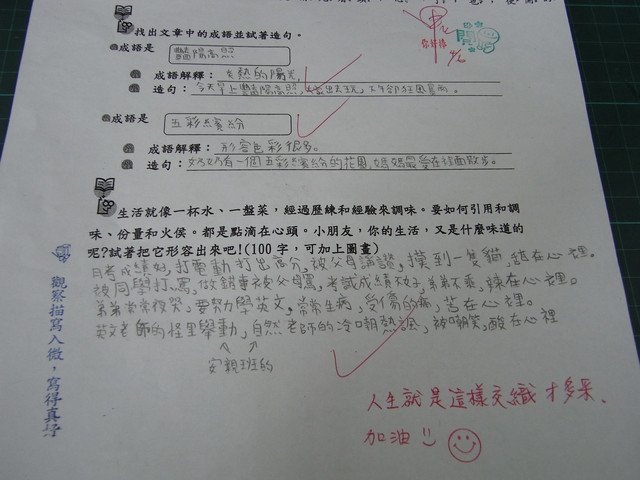 找出文章中的成語並試著造句。
成語是 豔陽高照
成語解釋：炙熱的陽光。
造句：今天早上豔陽高照，我出去玩，下午卻狂風暴雨。
成語是 五彩繽紛
成語解釋：形容色彩很多。
造句：奶奶有一個五彩繽紛的花園，媽媽最愛在裡面散步。
生活就像一杯水、一盤菜，經過歷練和經驗來調味。要如何引用和調
味、份量和火侯。都是點滴在心頭。小朋友，你的生活，又是什麼味道的
呢?試著把它形容出來吧!(100 字，可加上圖畫)
月考成績好，打電動打出高分，被父母誇讚，摸到一隻貓，甜在心裡。
被同學打、罵，做錯事被父母罵，考試成績不好，弟弟不乖，辣在心裡。
弟弟常常夜哭，要努力學英文，常常生病，受傷的痛，苦在心裡。
英文老師的怪里舉動，自然老師的冷嘲熱諷，被嘲笑，酸在心裡
安親班的
人生就是這樣交織才多采、
加油
觀察描寫入微，寫得真好